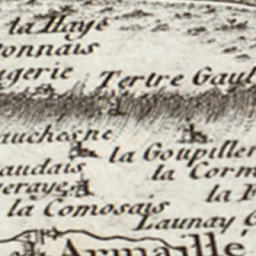 la Haye
onnais
gerie
Tertre Gaul
auchesne
la Goupiller
audais
la Corm
eraye
la F
la Comosais
Launay C
Armaillé